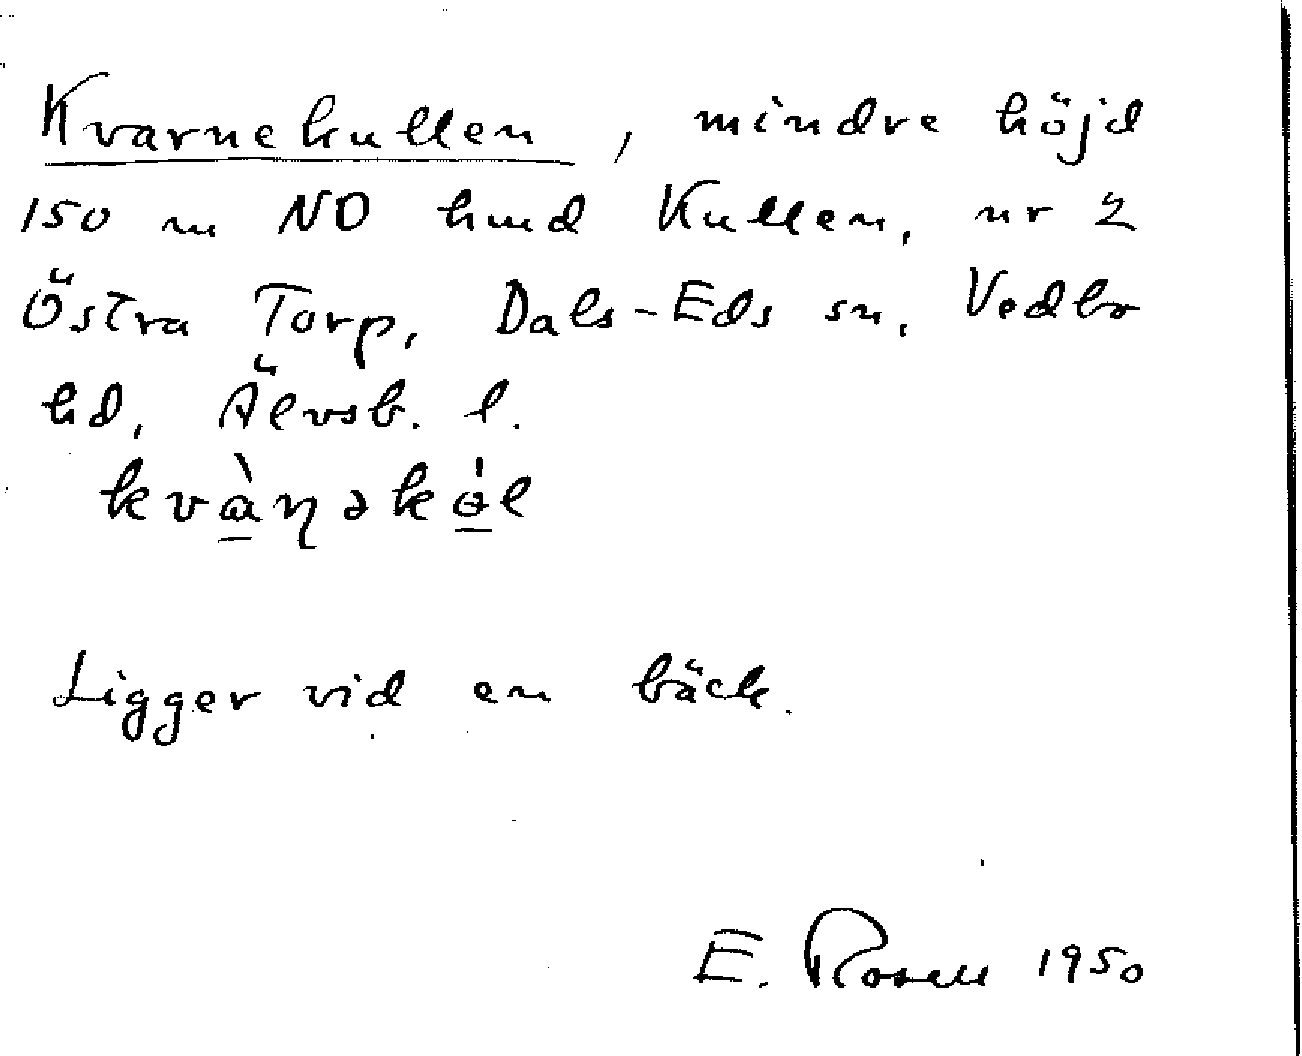 Kvarnekullen, mindre höjd
150 m NO hmd Kullen, nr 2
Östra Torp, Dals-Eds sn, Vedbo
hd, Älvsb. l.
kvàŋəkɵ́l
Ligger vid en bäck.
E. Rosell 1950